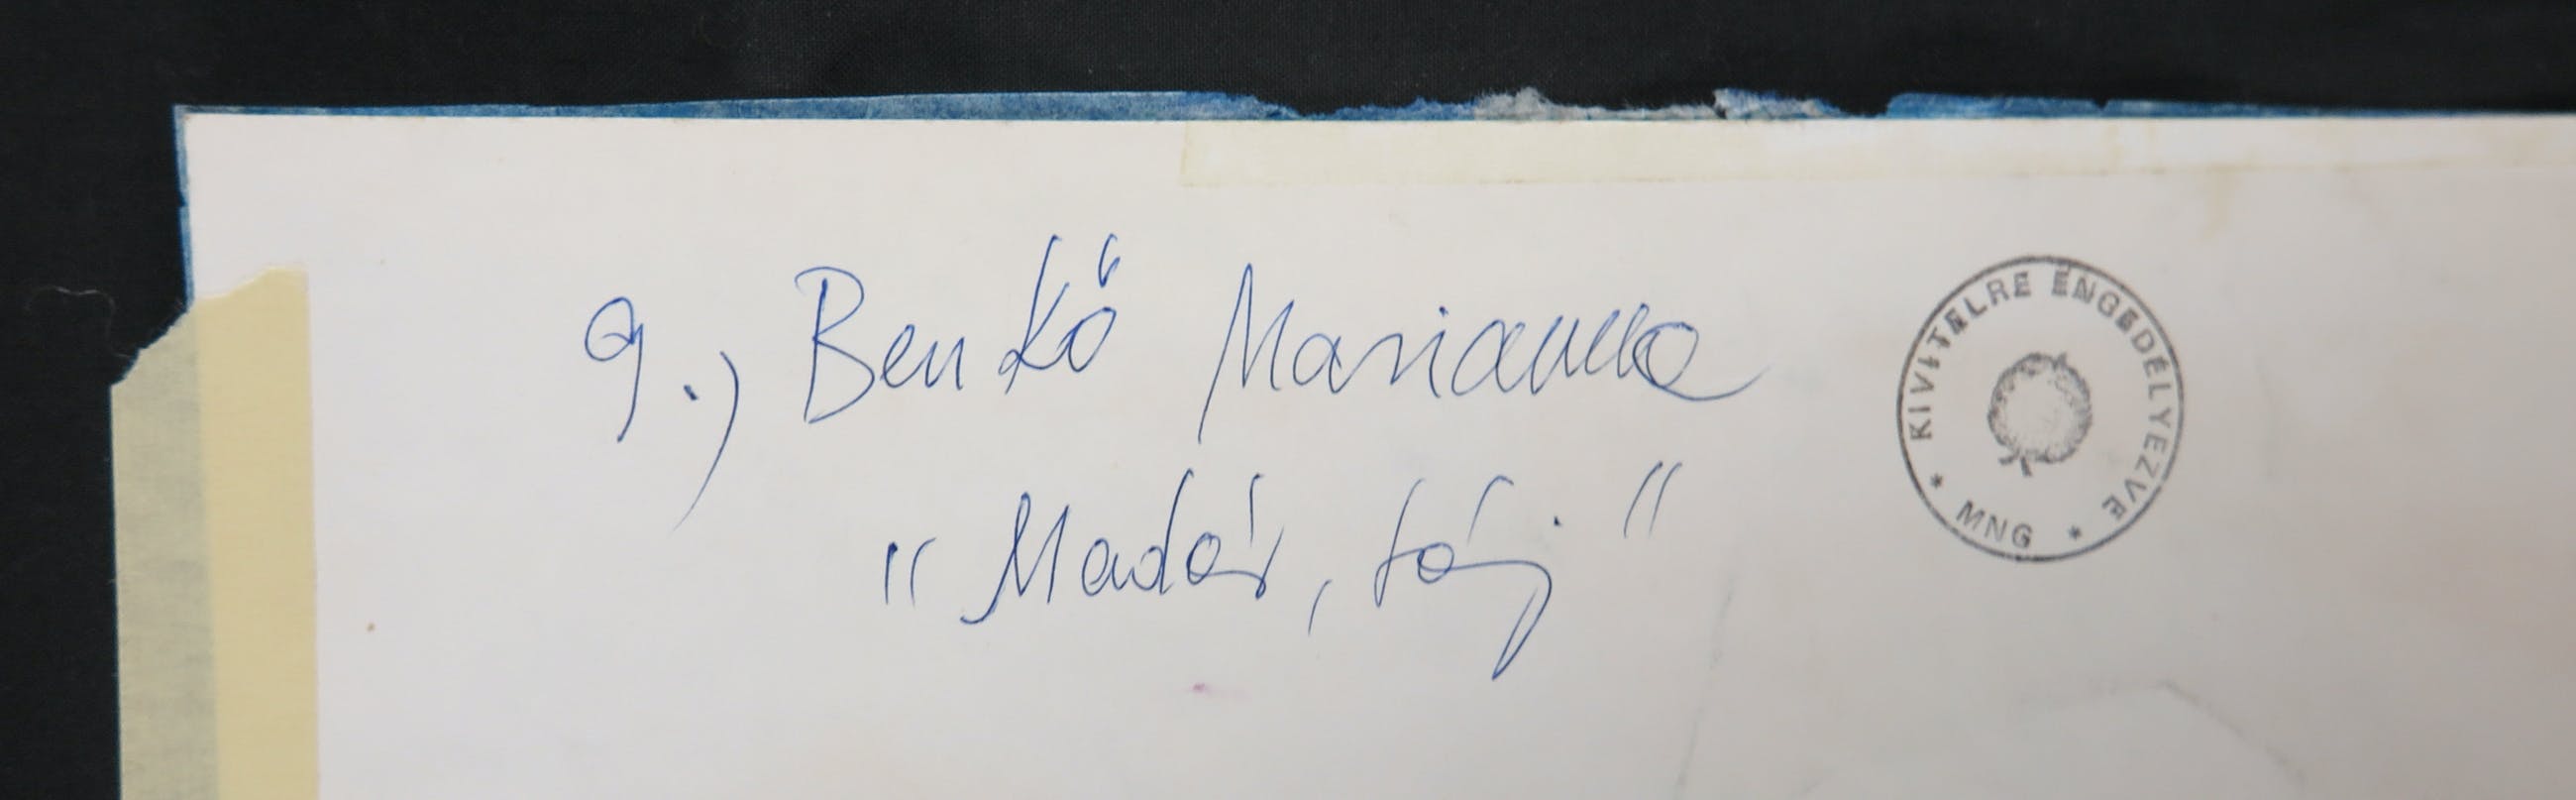 9.) Benkő Marianna
"Madár, táj"
* KIVITELRE ENGEDÉLYEZVE *
MNG